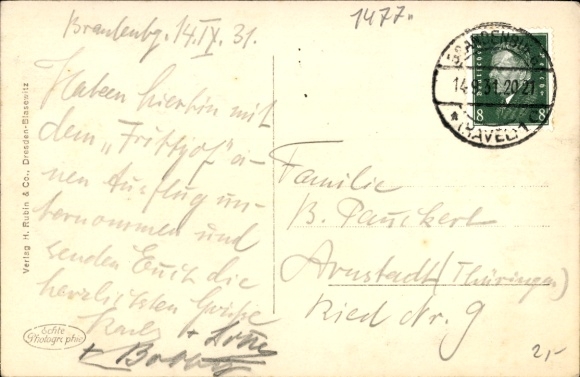 Brandenbg. 14.IX.31.
1477.
BRANDENBURG
14.9.31.20-21
* (HAVEL) 1
8 8
Haben hierhin mit
dem „Frithjof" ei-
nen Ausflug un-
ternommen und
senden Euch die
herzlichsten Grüße
Karl +
+
Familie
B. Pauckert
Arnstadt (Thüringen)
Ried Nr. 9
2,-
Verlag H. Rubin & Co., Dresden-Blasewitz
Echte
Photographie